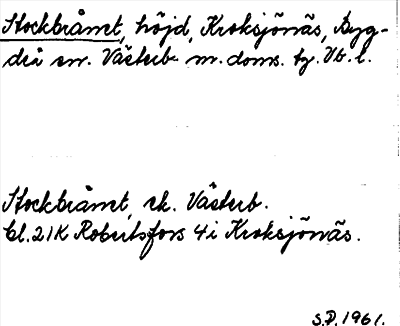 Stockbrånet, höjd, Kroksjönäs, Byg-
deå sn. Västerb. m. doms. tg. Vb. l.
Stockbrånet, ek. Västerb.
bl. 21K Robertsfors 4i Kroksjönäs.
S.D. 1961.